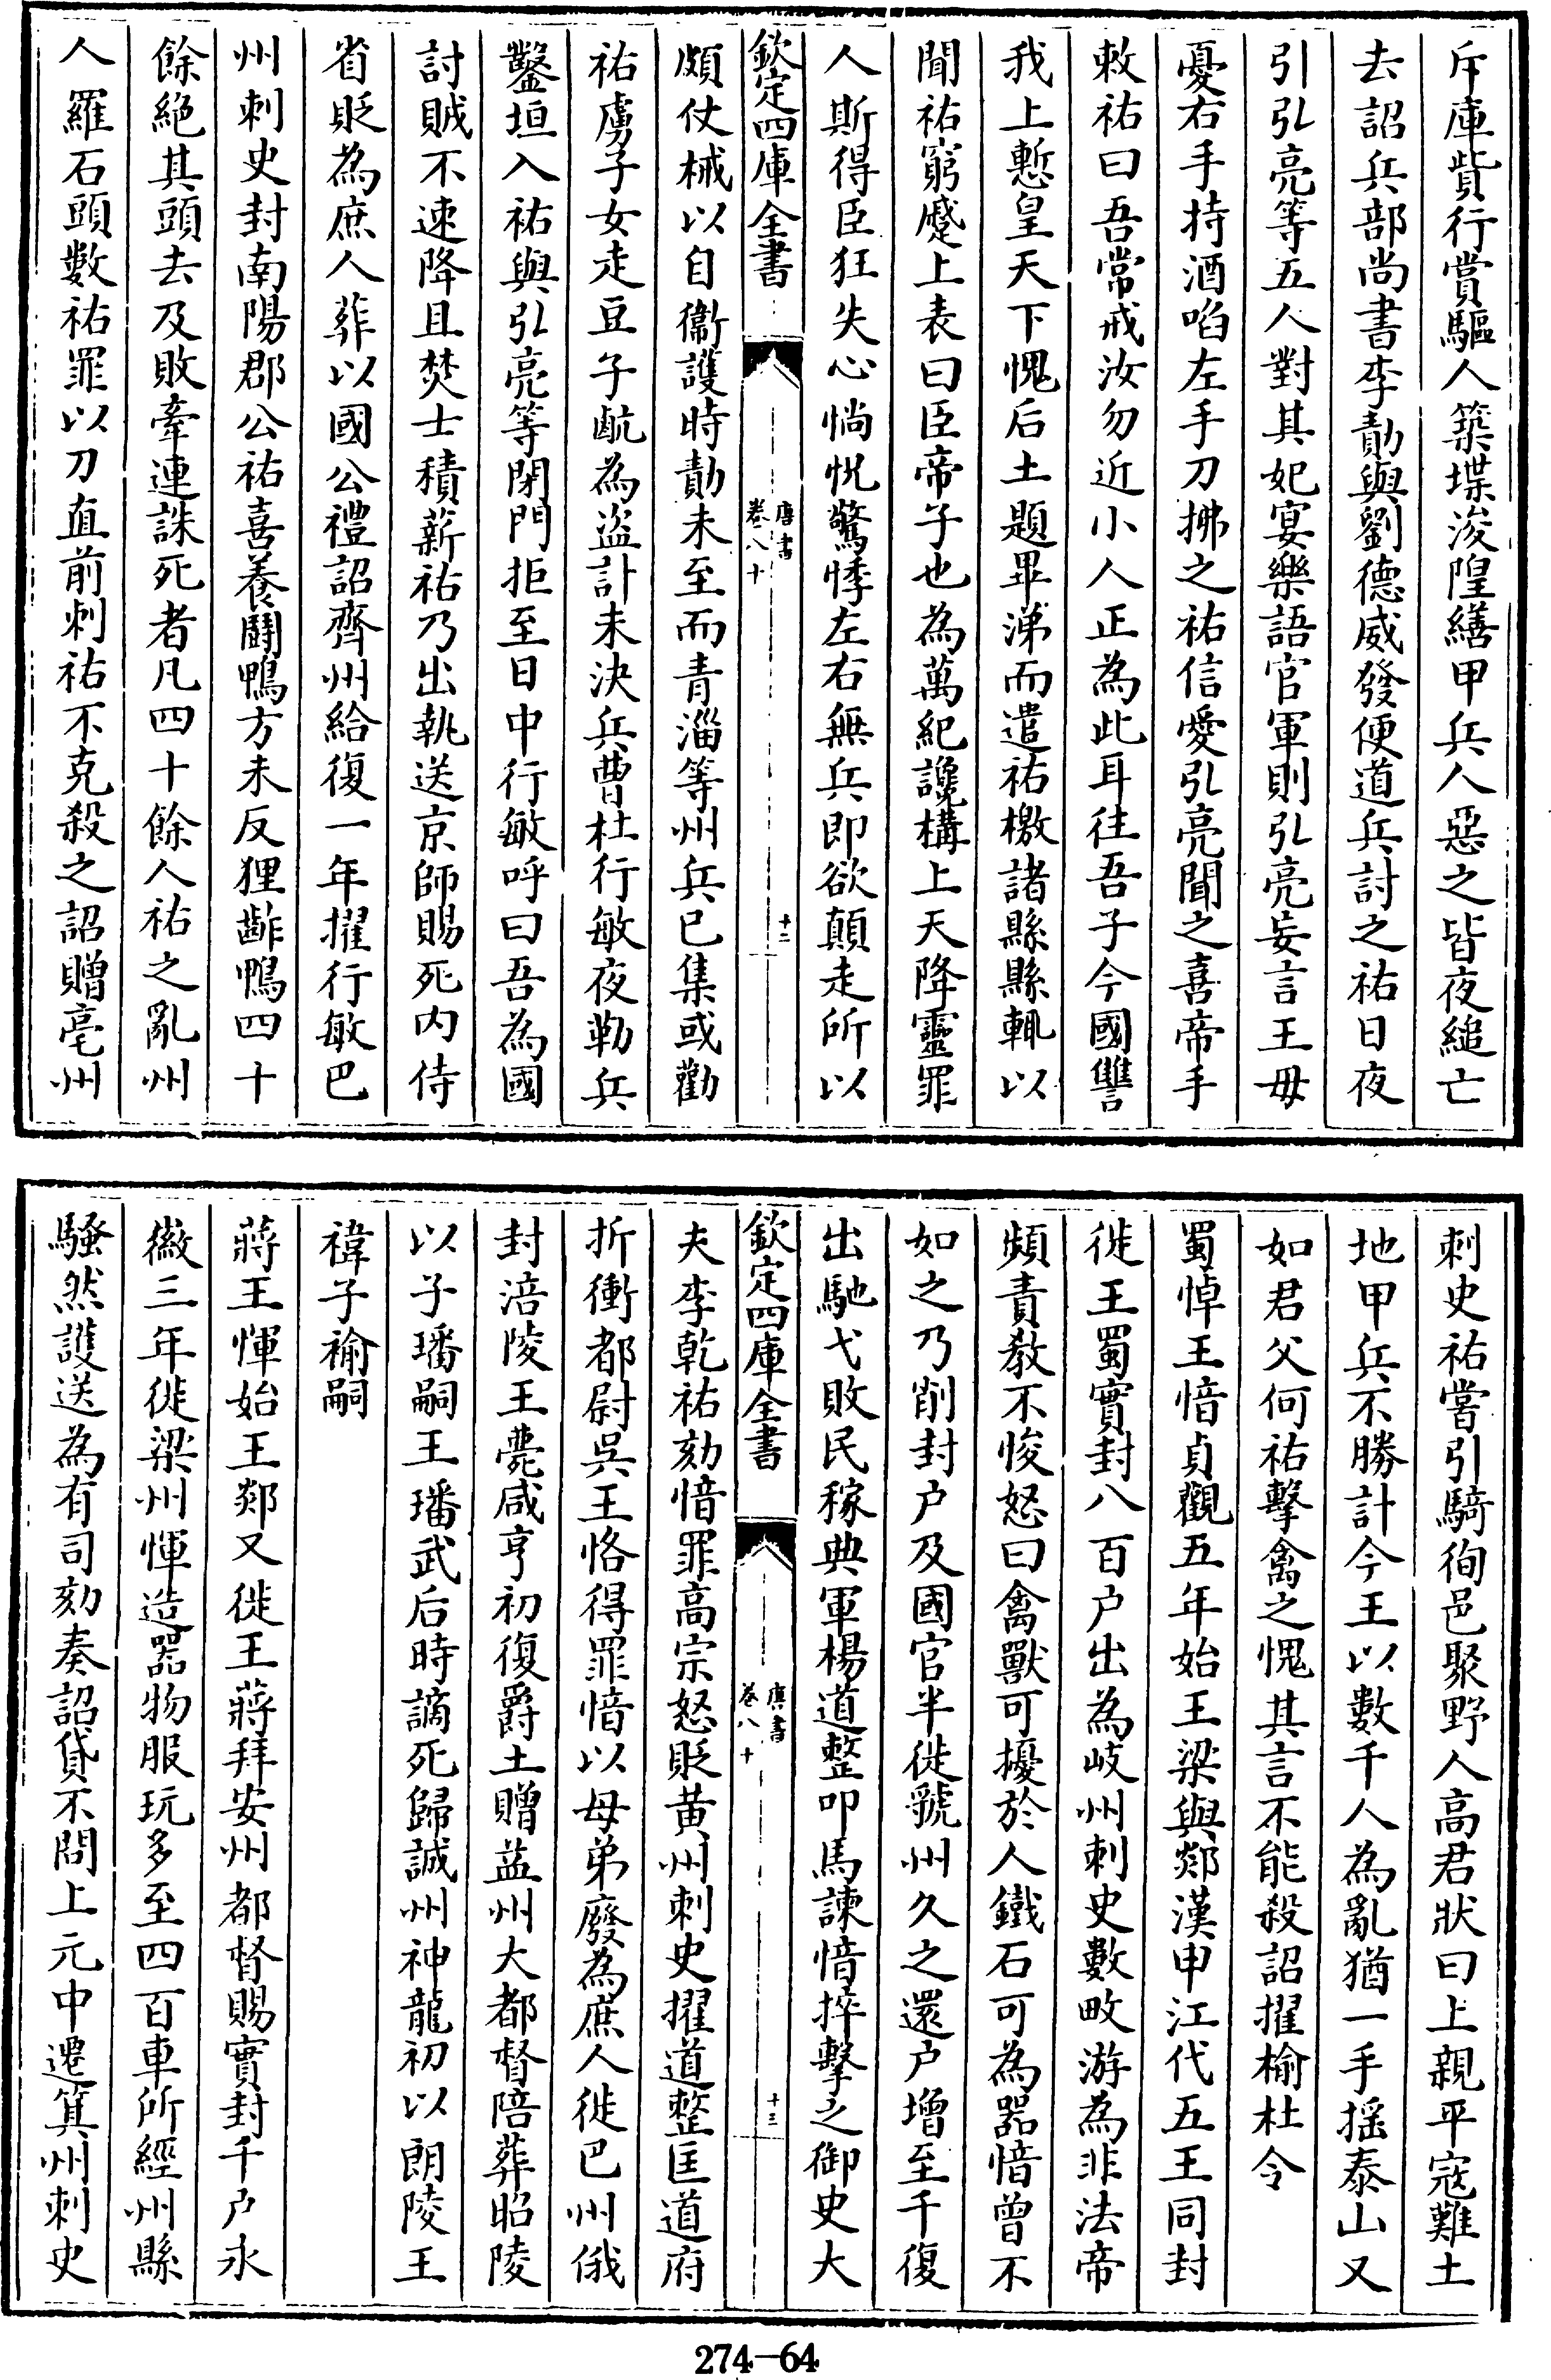 斥庫貲行賞驅人築堞浚隍繕甲兵人惡之皆夜縋亡
去詔兵部尚書李勣與劉德威發便道兵討之祐日夜
引弘亮等五人對其妃宴樂語官軍則弘亮妄言王毋
憂右手持酒啗左手刀拂之祐信愛弘亮聞之喜帝手
敕祐曰吾常戒汝勿近小人正為此耳往吾子今國讐
我上慙皇天下愧后土題畢涕而遣祐檄諸縣縣輒以
聞祐窮蹙上表曰臣帝子也為萬紀讒構上天降靈罪
人斯得臣狂失心惝怳驚悸左右無兵即欲顛走所以
欽定四庫全書
唐書
卷八十
十二
頗仗械以自衞護時勣未至而青淄等州兵已集或勸
祐虜子女走豆子䴚為盜計未決兵曹杜行敏夜勒兵
鑿垣入祐與弘亮等閉門拒至日中行敏呼曰吾為國
討賊不速降且焚士積薪祐乃出執送京師賜死内侍
省貶為庶人葬以國公禮詔齊州給復一年擢行敏巴
州刺史封南陽郡公祐喜養鬭鴨方未反狸齰鴨四十
餘絶其頭去及敗牽連誅死者凡四十餘人祐之亂州
人羅石頭數祐罪以刀直前刺祐不克殺之詔贈亳州
刺史祐嘗引騎徇邑聚野人高君狀曰上親平寇難土
地甲兵不勝計今王以數千人為亂猶一手搖泰山又
如君父何祐擊禽之愧其言不能殺詔擢榆杜令
蜀悼王愔貞觀五年始王梁與郯漢申江代五王同封
徙王蜀實封八百户出為岐州刺史數畋游為非法帝
頻責教不悛怒曰禽獸可擾於人鐵石可為器愔曾不
如之乃削封户及國官半徙虢州久之還户增至千復
出馳弋敗民稼典軍楊道整叩馬諫愔捽擊之御史大
欽定四庫全書
唐書
卷八十
十三
夫李乾祐劾愔罪高宗怒貶黄州刺史擢道整匡道府
折衝都尉吳王恪得罪愔以母弟廢為庶人徙巴州俄
封涪陵王薨咸亨初復爵土贈益州大都督陪葬昭陵
以子璠嗣王璠武后時謫死歸誠州神龍初以朗陵王
褘子褕嗣
蔣王惲始王郯又徙王蔣拜安州都督賜實封千户永
徽三年徙梁州惲造器物服玩多至四百車所經州縣
騷然護送為有司劾奏詔貸不問上元中遷箕州刺史
274-64